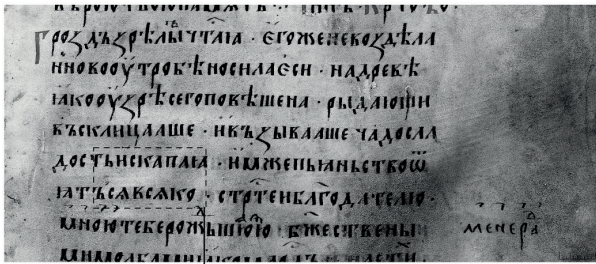 Гроздъзрѣлыичтаꙗ · егоженевоздѣла
нновооутробѣносилаеси · надревѣ
ꙗкооузрѣсегоповѣшена · рыдающи
въсклицааше · ивъзывааше чадосла
достьискаплꙗ · имжепьꙗньствоѿ
ꙗтъсѧвсѧко · стртенблгодателю ·
мноютеберожьшюю · бжественыи
менера